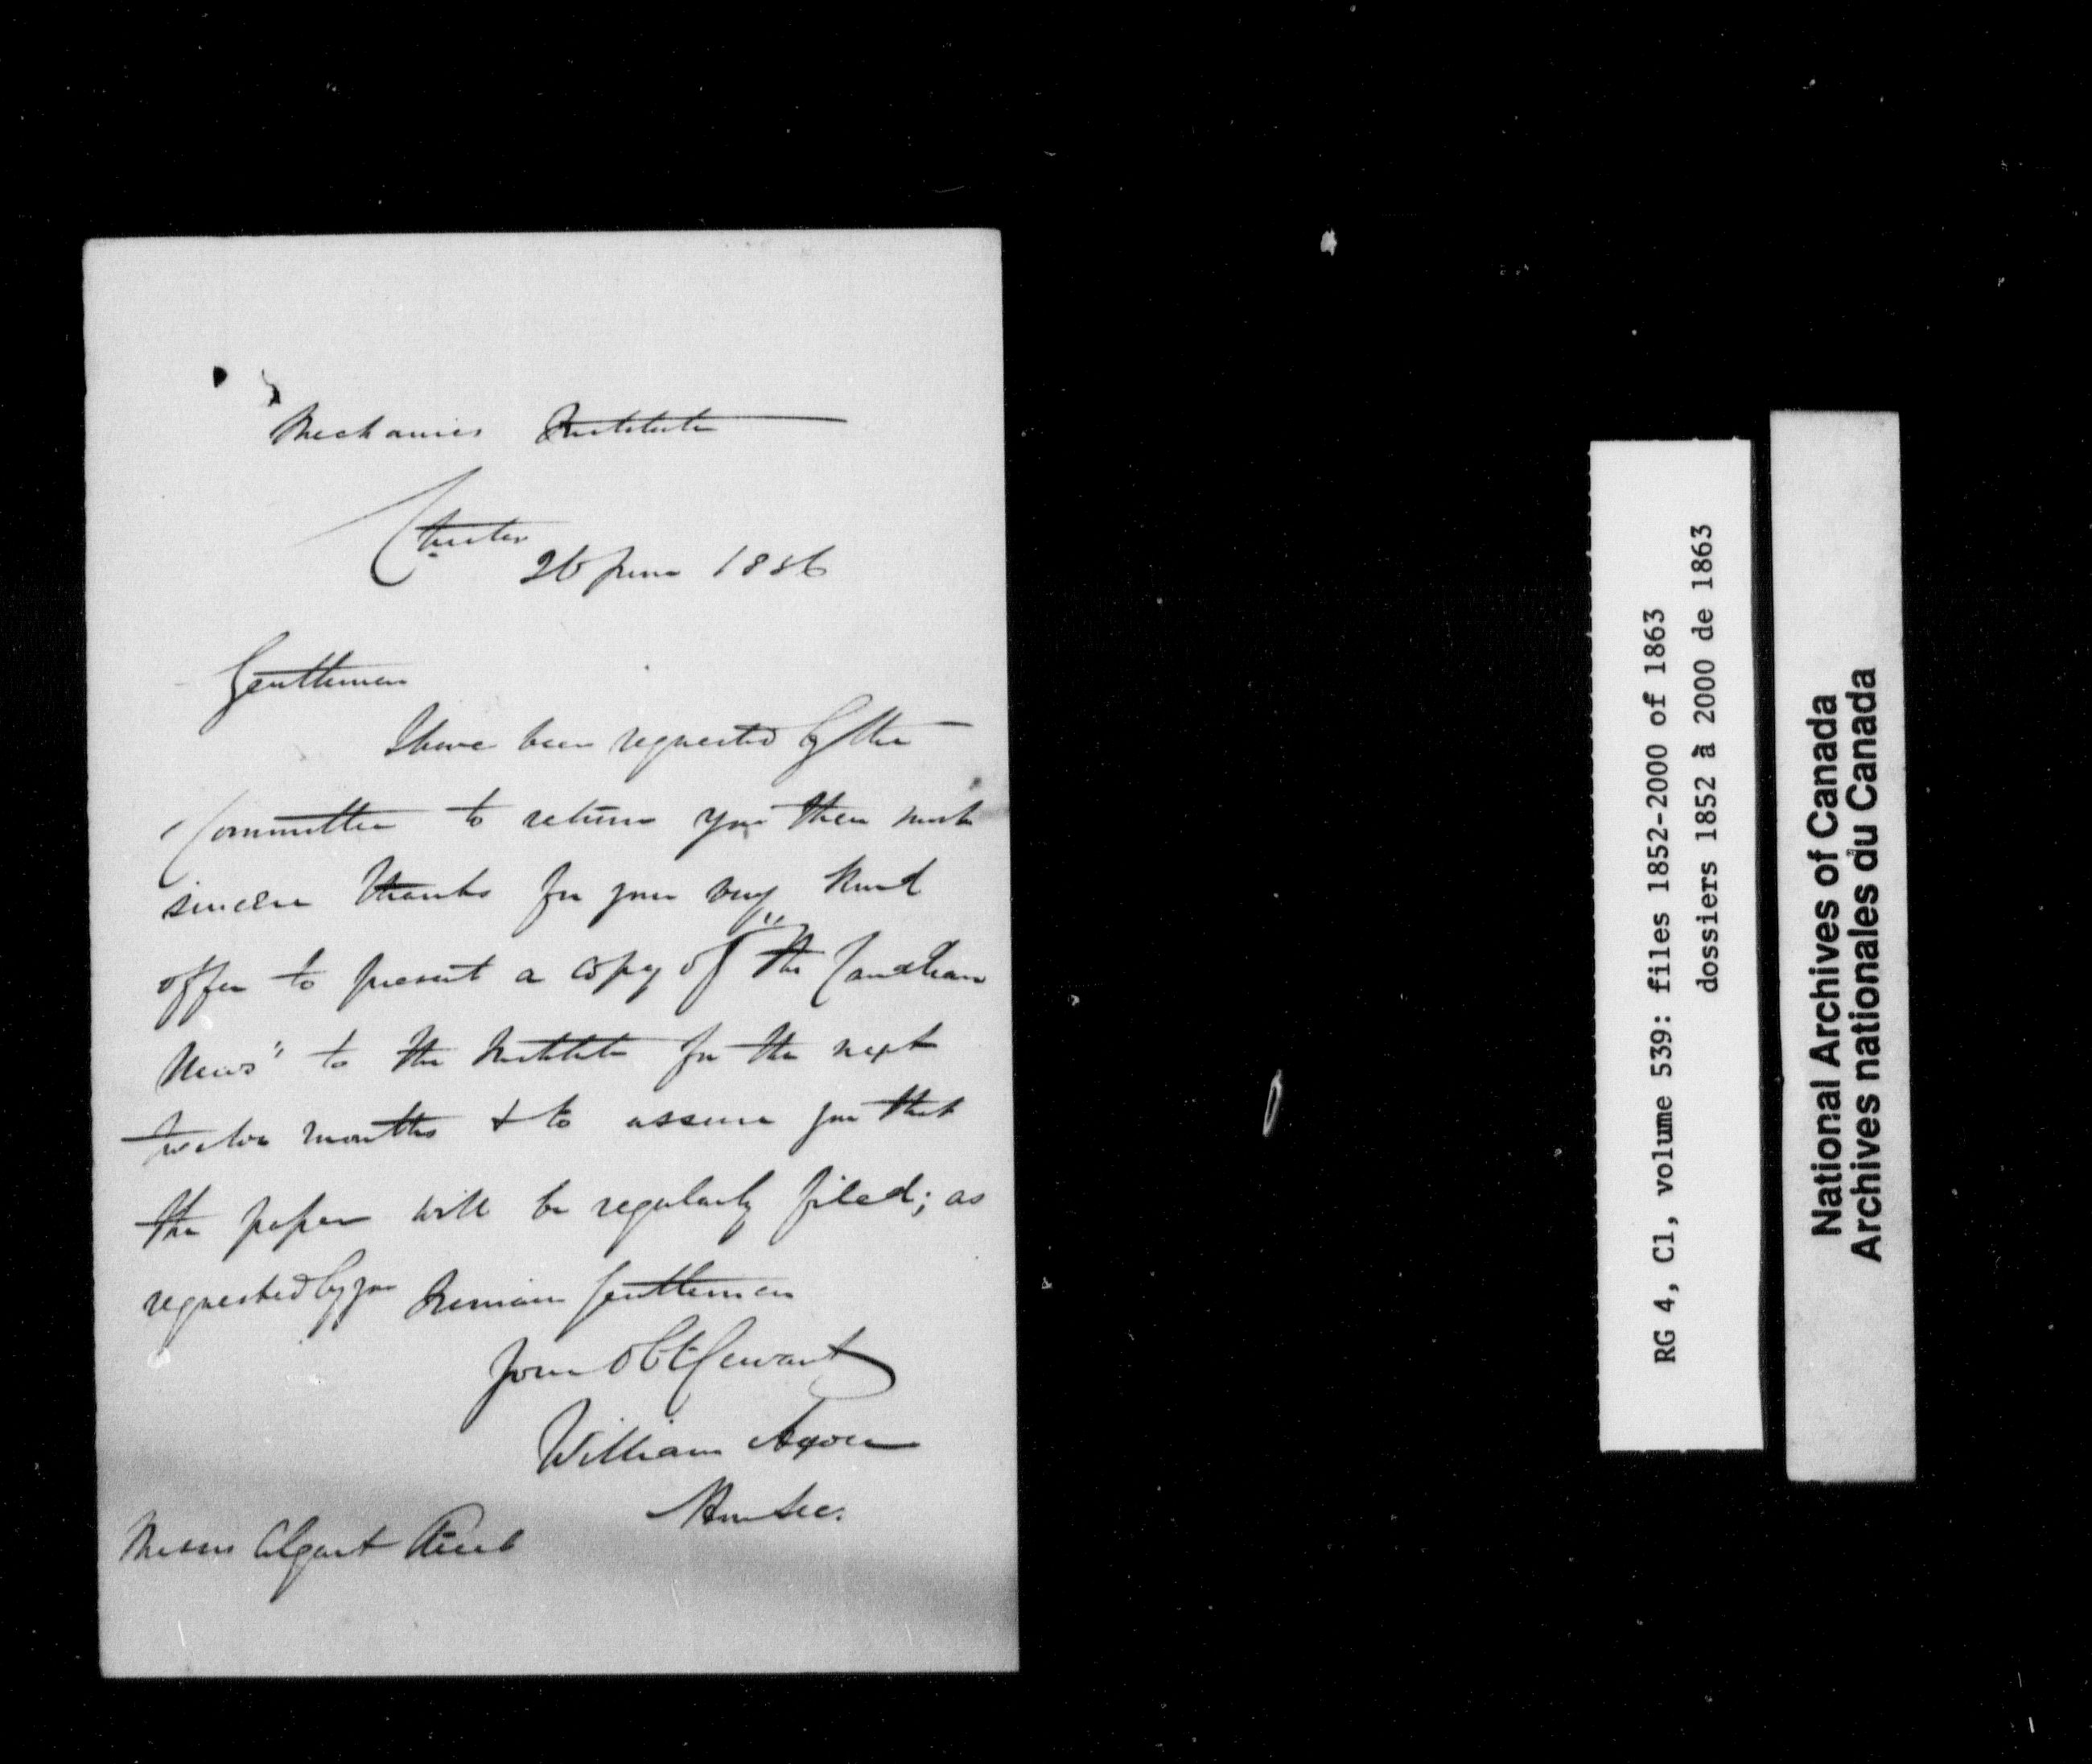 Mechanics Institute
Chester
26 June 1856
Gentlemen
I have been requested by the
Committee to return you their most
sincere thanks for your very kind
offer to present a copy of "The Canadian
News" to the Institute for the next
twelve months & to assure you that
the paper will be regularly filed; as
requested by you Remain Gentlemen
Your Obt Servant
William
Hon Sec.
Messrs Algar & Street
RG 4, C1, volume 539: files 1852-2000 of 1863
dossiers 1852 à 2000 de 1863
National Archives of Canada
Archives nationales du Canada